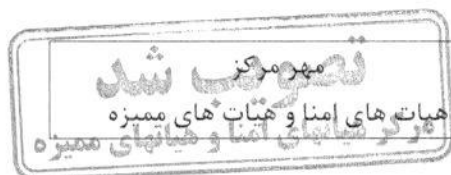 تصویب شد
مهر مرکز
هیات های امنا و هیات های ممیزه
مرکز هیاتهای امنا و هیاتهای ممیزه